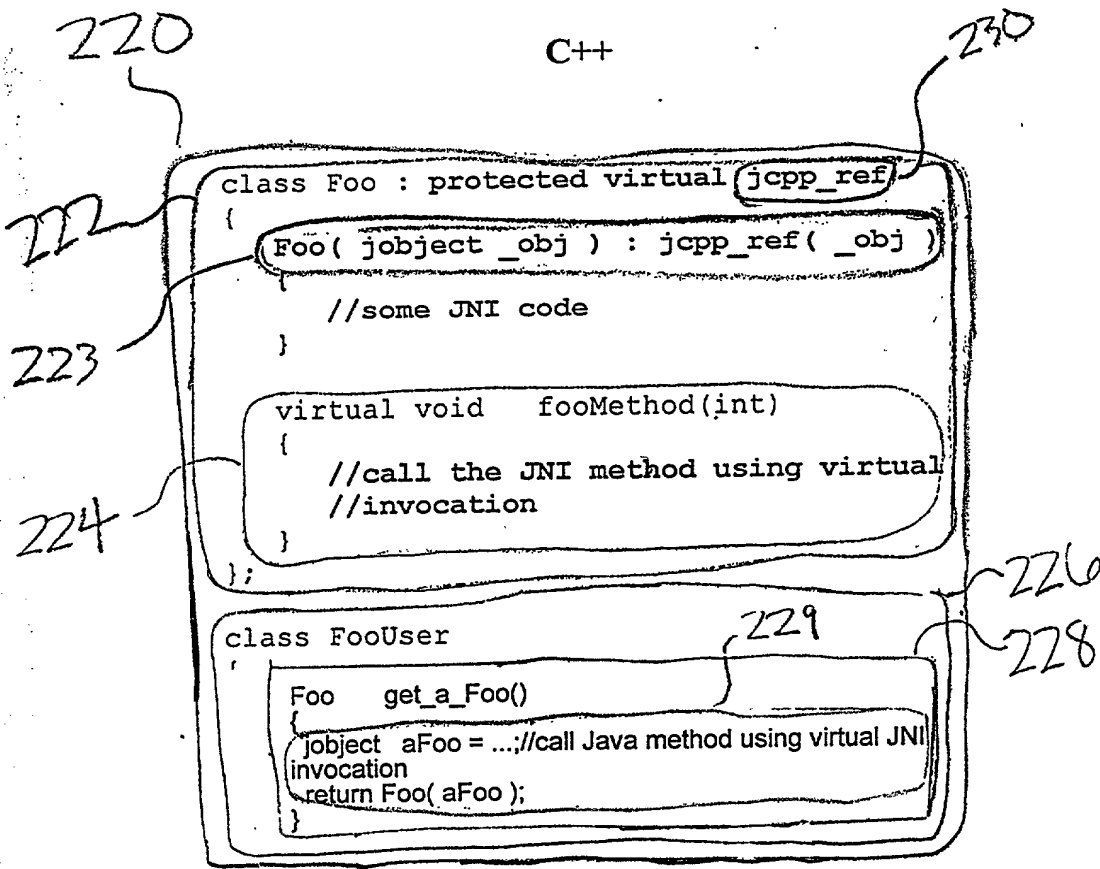 220
C++
230
class Foo : protected virtual jcpp_ref
222
{
Foo( jobject _obj ) : jcpp_ref( _obj )
223
{
//some JNI code
}
virtual void fooMethod(int)
{
//call the JNI method using virtual
//invocation
224
}
};
226
class FooUser
229
228
{
Foo get_a_Foo()
{
jobject aFoo = ...;//call Java method using virtual JNI
invocation
return Foo( aFoo );
}